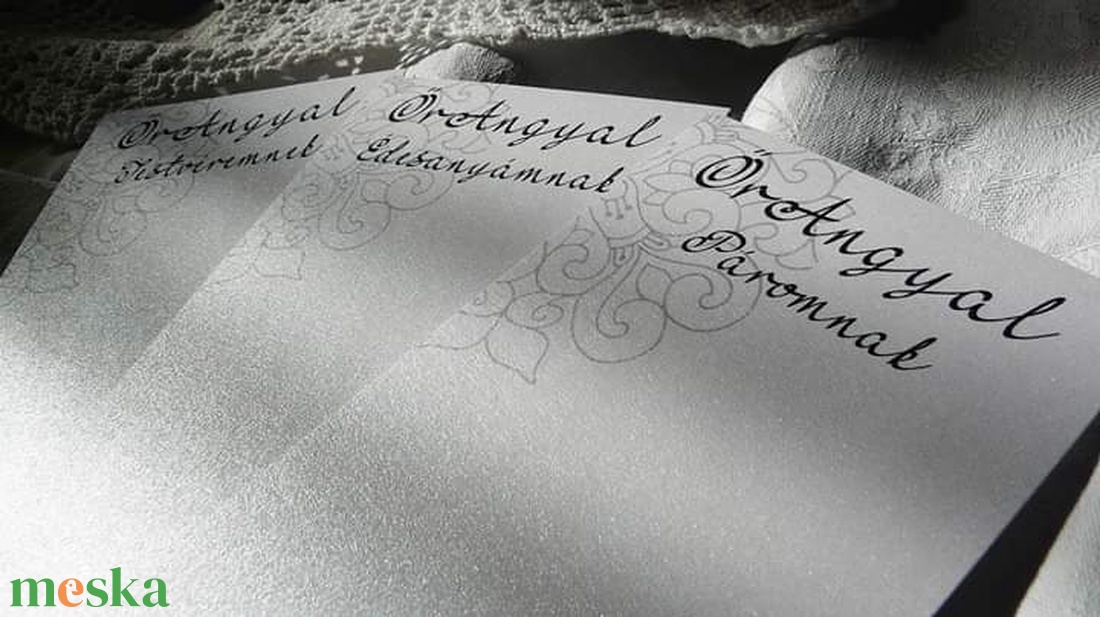 ŐrAngyal
Testvéremnek
ŐrAngyal
Édesanyámnak
ŐrAngyal
Páromnak
meska